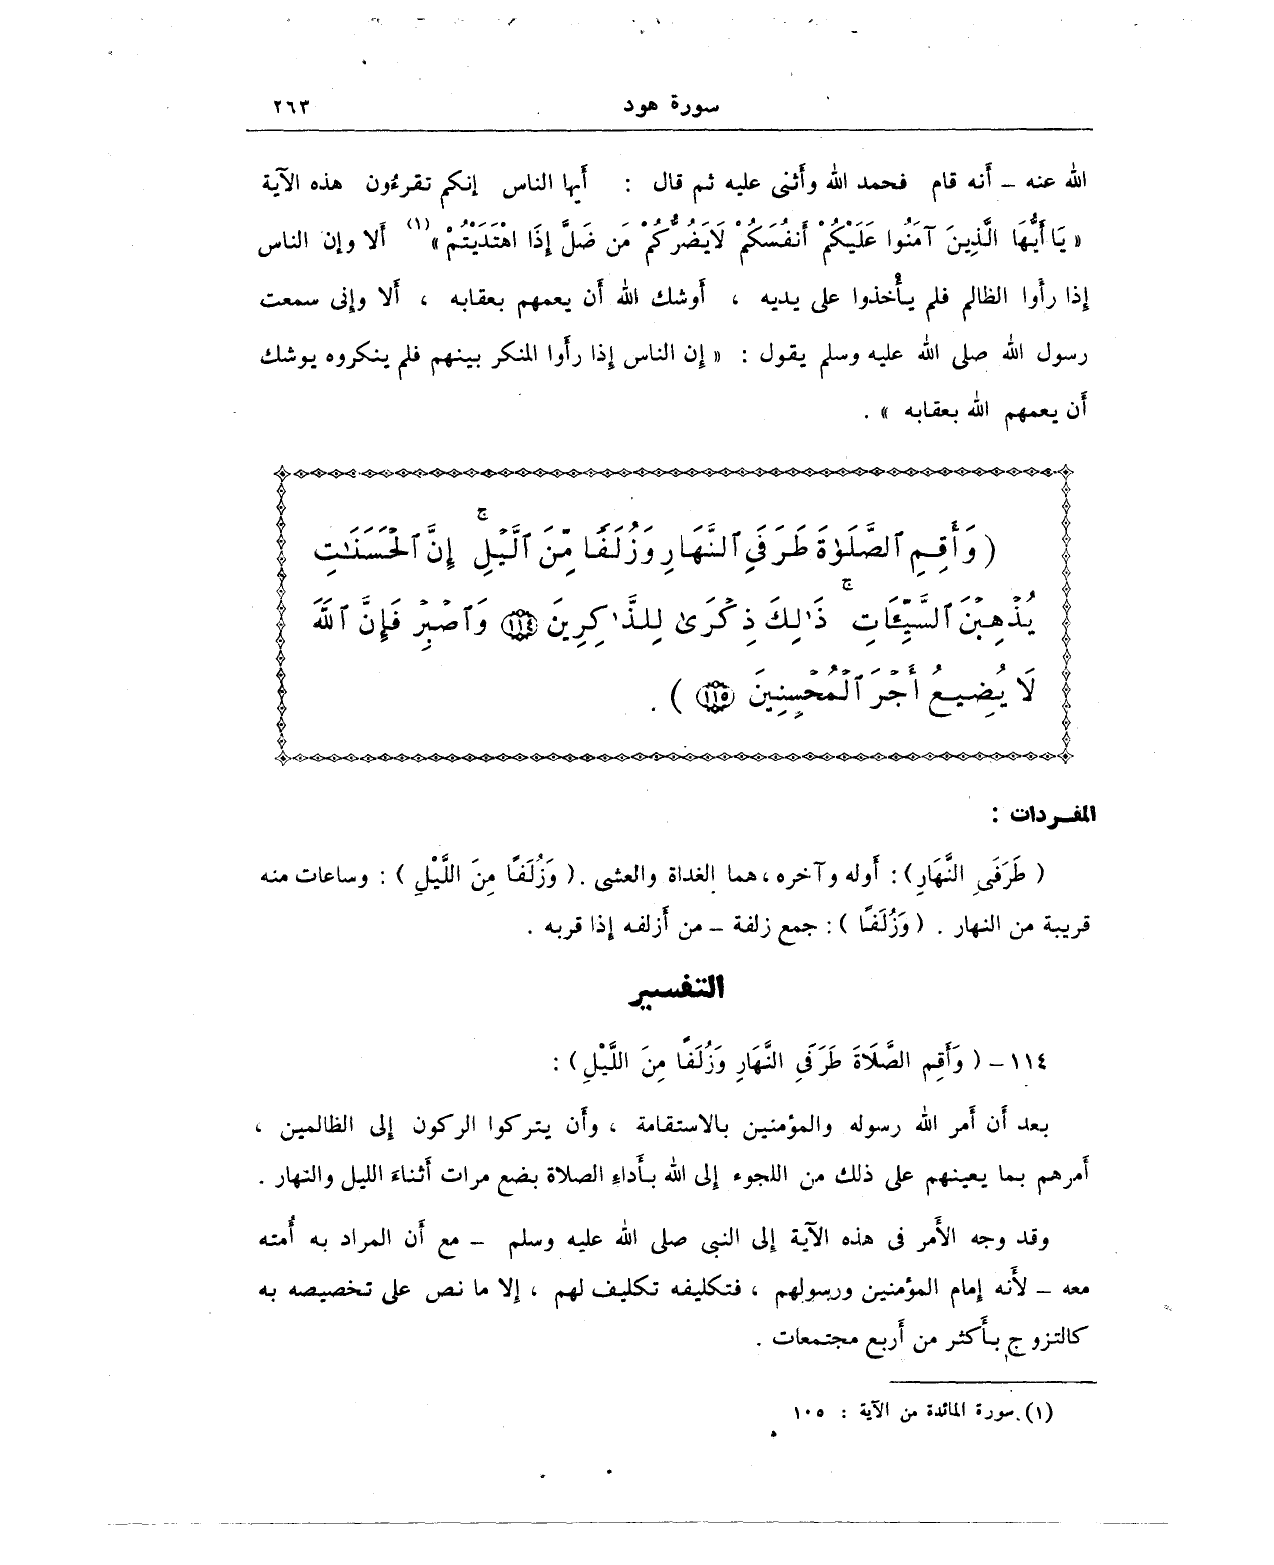 سورة هود ٢٦٣
الله عنه ـ أنه قام فحمد الله وأثنى عليه ثم قال : أيها الناس إنكم تقرءون هذه الآية
« يَا أَيُّهَا الَّذِينَ آمَنُوا عَلَيْكُمْ أَنفُسَكُمْ لَايَضُرُّكُمْ مَن ضَلَّ إِذَا اهْتَدَيْتُمْ »(١) ألا وإن الناس
إذا رأوا الظالم فلم يأخذوا على يديه ، أوشك الله أن يعمهم بعقابه ، ألا وإنى سمعت
رسول الله صلى الله عليه وسلم يقول : « إن الناس إذا رأوا المنكر بينهم فلم ينكروه يوشك
أن يعمهم الله بعقابه » .
( وَأَقِمِ ٱلصَّلَوٰةَ طَرَفَىِ ٱلنَّهَارِ وَزُلَفًا مِّنَ ٱلَّيْلِ ۚ إِنَّ ٱلْحَسَنَٰتِ
يُذْهِبْنَ ٱلسَّيِّئَاتِ ۚ ذَٰلِكَ ذِكْرَىٰ لِلذَّٰكِرِينَ ١١٤ وَٱصْبِرْ فَإِنَّ ٱللَّهَ
لَا يُضِيعُ أَجْرَ ٱلْمُحْسِنِينَ ١١٥ ) .
المفـردات :
( طَرَفَىِ النَّهَارِ ) : أوله وآخره ، هما الغداة والعشى . ( وَزُلَفًا مِنَ اللَّيْلِ ) : وساعات منه
قريبة من النهار . ( وَزُلَفًا ) : جمع زلفة ـ من أزلفه إذا قربه .
التفسير
١١٤ ـ ( وَأَقِمِ الصَّلَاةَ طَرَفَىِ النَّهَارِ وَزُلَفًا مِنَ اللَّيْلِ ) :
بعد أن أمر الله رسوله والمؤمنين بالاستقامة ، وأن يتركوا الركون إلى الظالمين ،
أمرهم بما يعينهم على ذلك من اللجوء إلى الله بأداءِ الصلاة بضع مرات أثناءَ الليل والنهار .
وقد وجه الأمر فى هذه الآية إلى النبى صلى الله عليه وسلم ـ مع أن المراد به أُمته
معه ـ لأنه إمام المؤمنين ورسولهم ، فتكليفه تكليف لهم ، إلا ما نص على تخصيصه به
كالتزوج بأكثر من أربع مجتمعات .
(١) سورة المائدة من الآية : ١٠٥